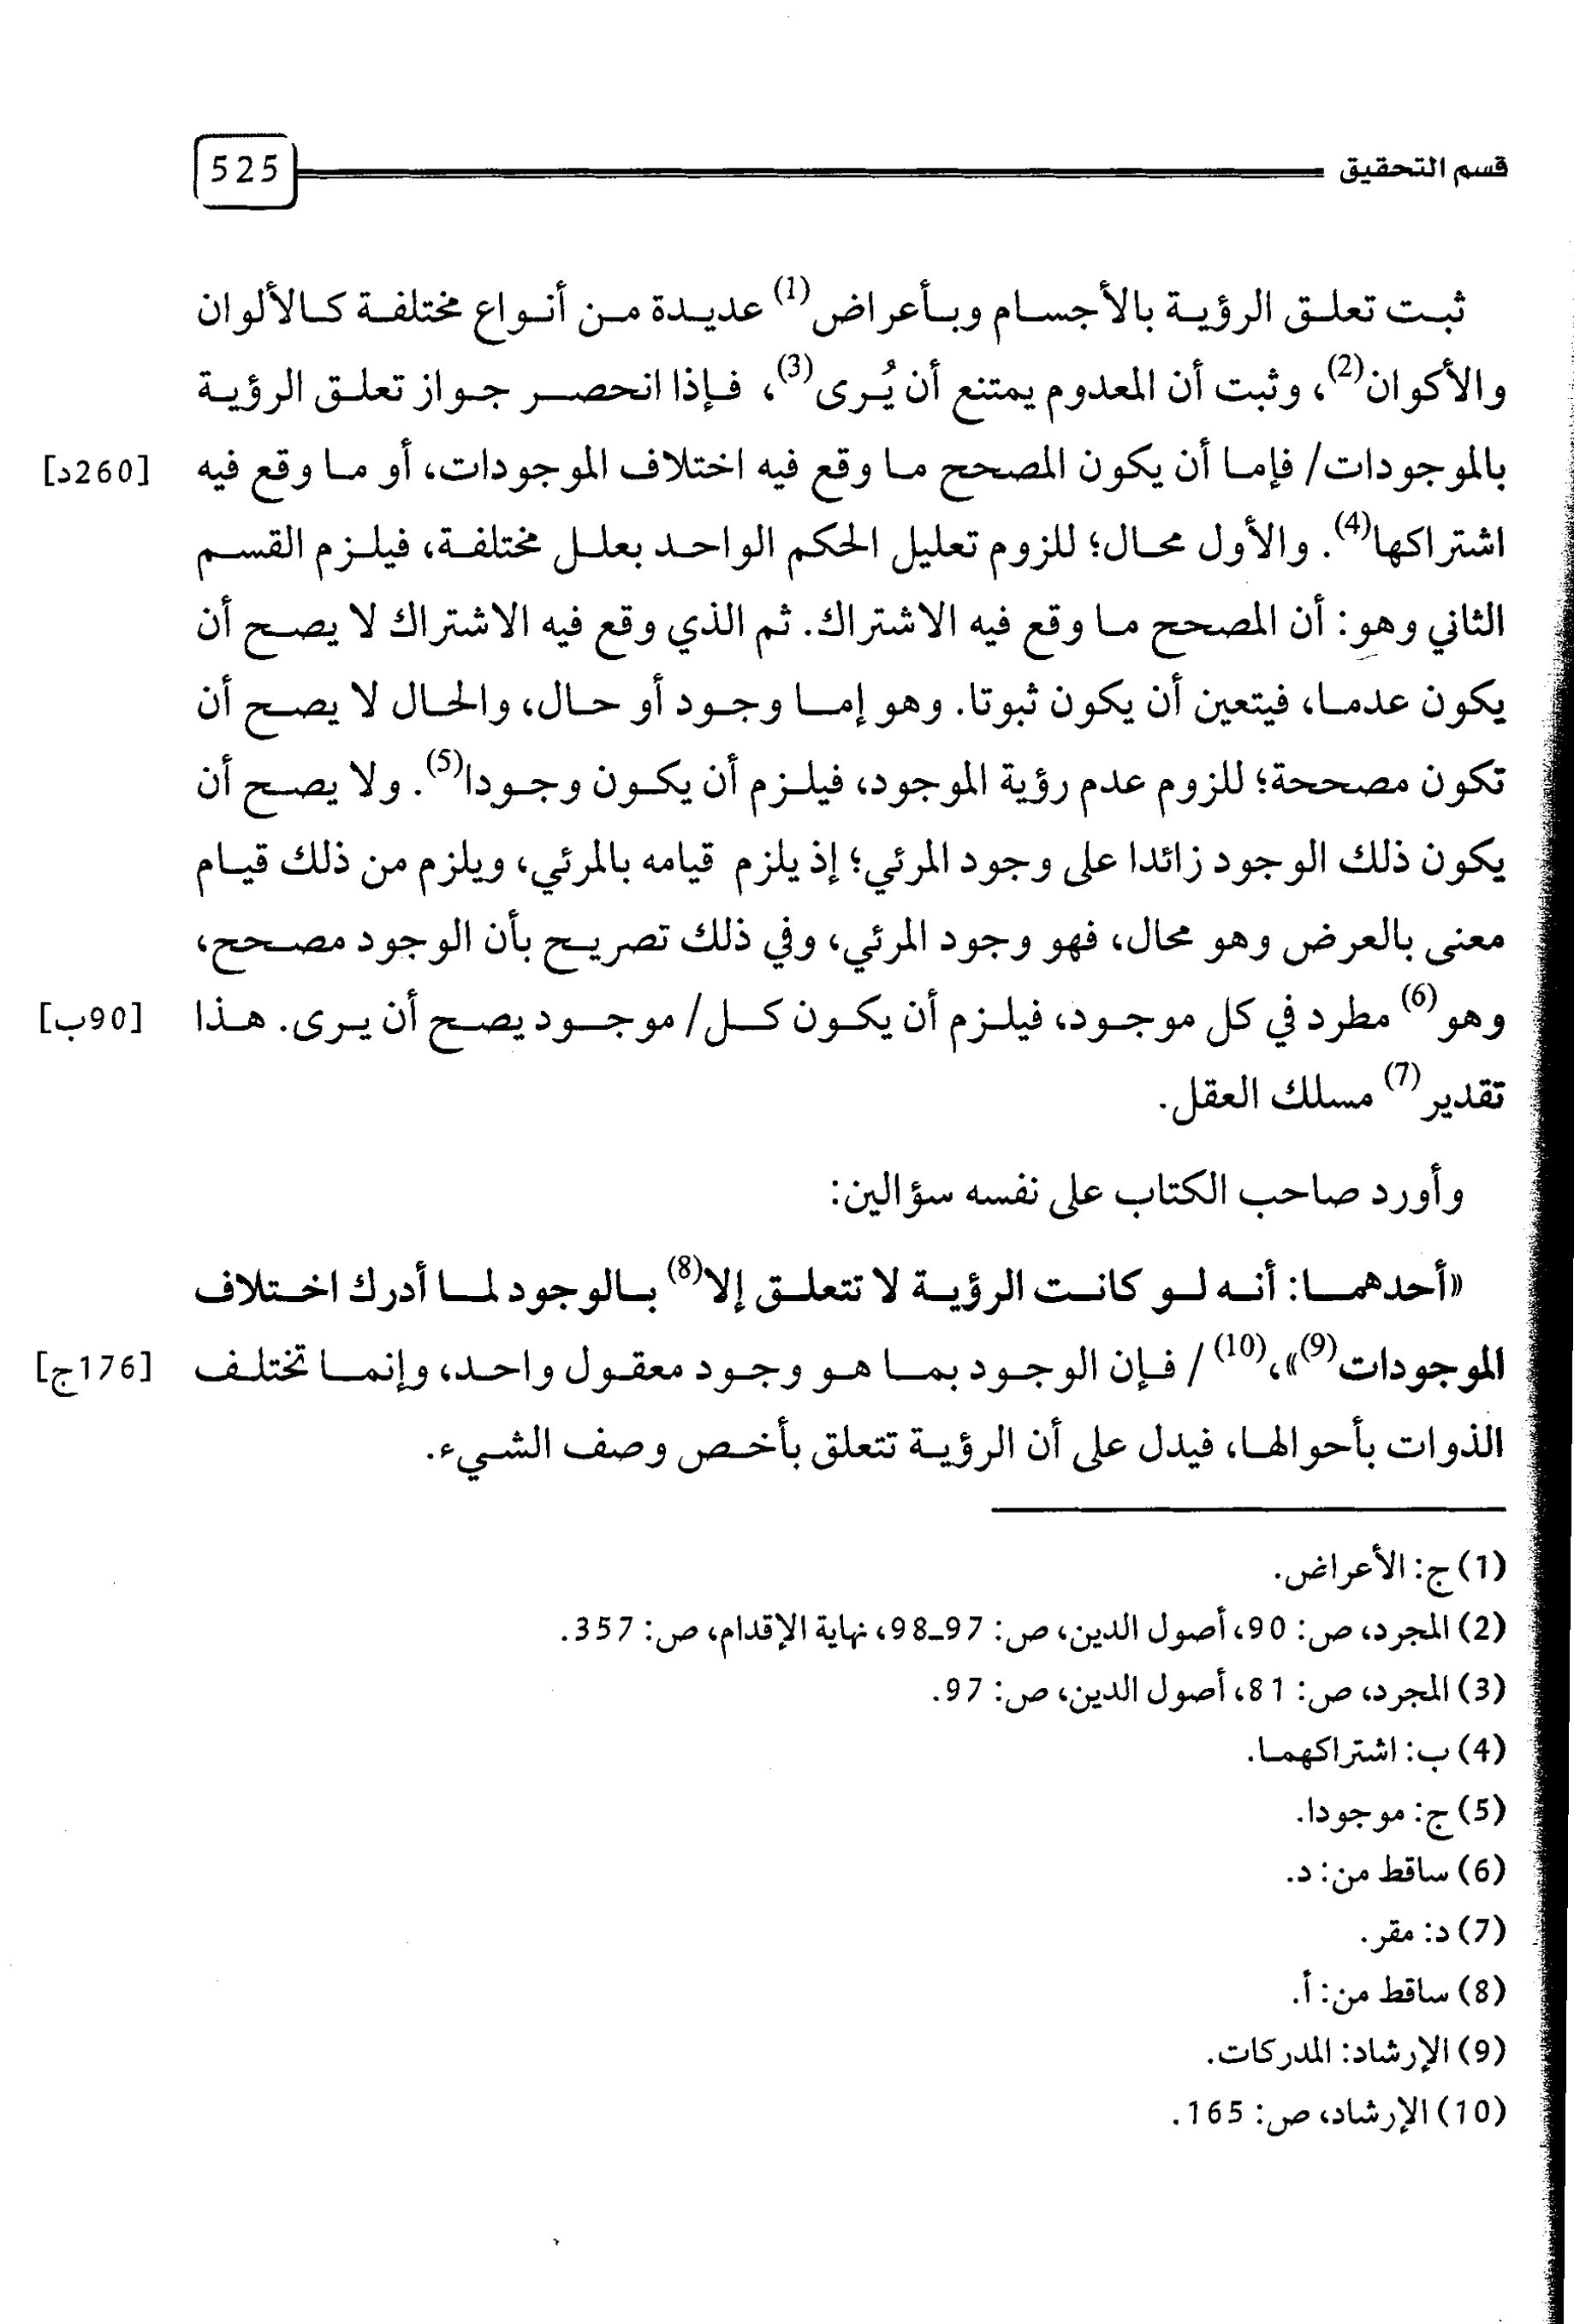 قسم التحقيق 525
ثبت تعلق الرؤية بالأجسام وبأعراض(1) عديدة من أنواع مختلفة كالألوان
والأكوان(2)، وثبت أن المعدوم يمتنع أن يُرى(3)، فإذا انحصر جواز تعلق الرؤية
بالموجودات/ فإما أن يكون المصحح ما وقع فيه اختلاف الموجودات، أو ما وقع فيه [260د]
اشتراكها(4). والأول محال؛ للزوم تعليل الحكم الواحد بعلل مختلفة، فيلزم القسم
الثاني وهو: أن المصحح ما وقع فيه الاشتراك. ثم الذي وقع فيه الاشتراك لا يصح أن
يكون عدما، فيتعين أن يكون ثبوتا. وهو إما وجود أو حال، والحال لا يصح أن
تكون مصححة؛ للزوم عدم رؤية الموجود، فيلزم أن يكون وجودا(5). ولا يصح أن
يكون ذلك الوجود زائدا على وجود المرئي؛ إذ يلزم قيامه بالمرئي، ويلزم من ذلك قيام
معنى بالعرض وهو محال، فهو وجود المرئي، وفي ذلك تصريح بأن الوجود مصحح،
وهو(6) مطرد في كل موجود، فيلزم أن يكون كل/ موجود يصح أن يرى. هذا [90ب]
تقدير(7) مسلك العقل.
وأورد صاحب الكتاب على نفسه سؤالين:
«أحدهما: أنه لو كانت الرؤية لا تتعلق إلا(8) بالوجود لما أدرك اختلاف
الموجودات(9)»،(10) / فإن الوجود بما هو وجود معقول واحد، وإنما تختلف [176ج]
الذوات بأحوالها، فيدل على أن الرؤية تتعلق بأخص وصف الشيء.
(1) ج: الأعراض.
(2) المجرد، ص: 90، أصول الدين، ص: 97ـ98، نهاية الإقدام، ص: 357.
(3) المجرد، ص: 81، أصول الدين، ص: 97.
(4) ب: اشتراكهما.
(5) ج: موجودا.
(6) ساقط من: د.
(7) د: مقر.
(8) ساقط من: أ.
(9) الإرشاد: المدركات.
(10) الإرشاد، ص: 165.